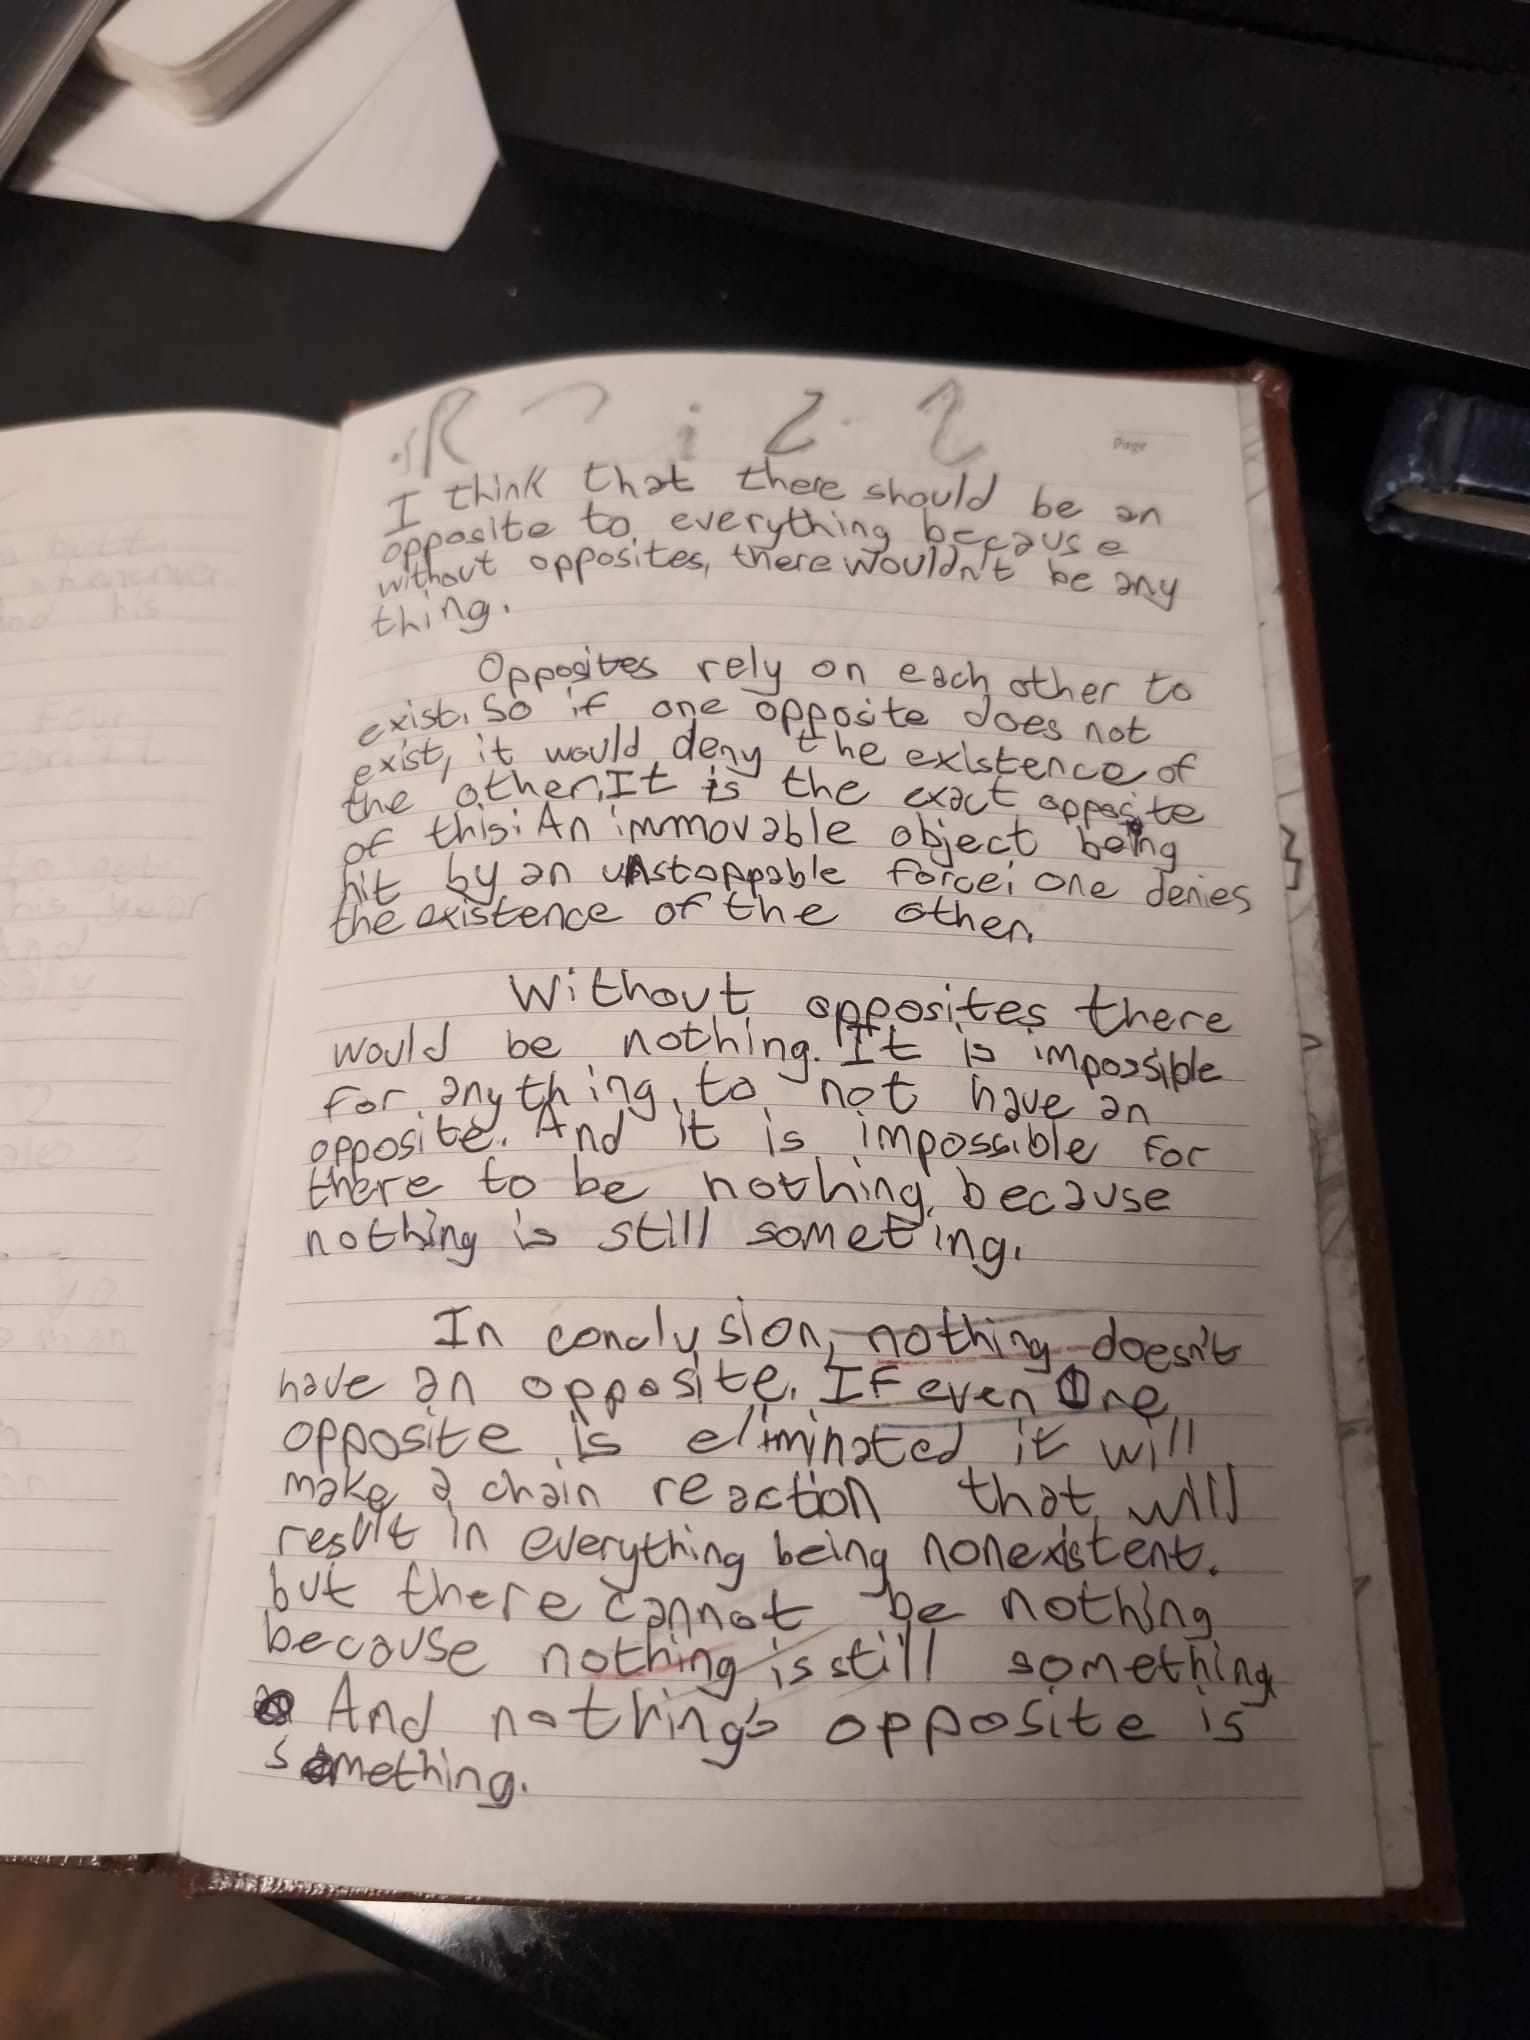 Page
I think that there should be an
opposite to everything because
without opposites, there wouldn't be any
thing.
Opposites rely on each other to
exist. So if one opposite does not
exist, it would deny the existence of
the other. It is the exact opposite
of this: An immovable object being
hit by an unstoppable force; one denies
the existence of the other.
Without opposites there
would be nothing. It is impossible
for anything to not have an
opposite. And it is impossible for
there to be nothing, because
nothing is still someting.
In conclusion, nothing doesn't
have an opposite. If even One
opposite is eliminated it will
make a chain reaction that will
result in everything being nonexistent.
but there cannot be nothing
because nothing is still something
And nothing's opposite is
something.